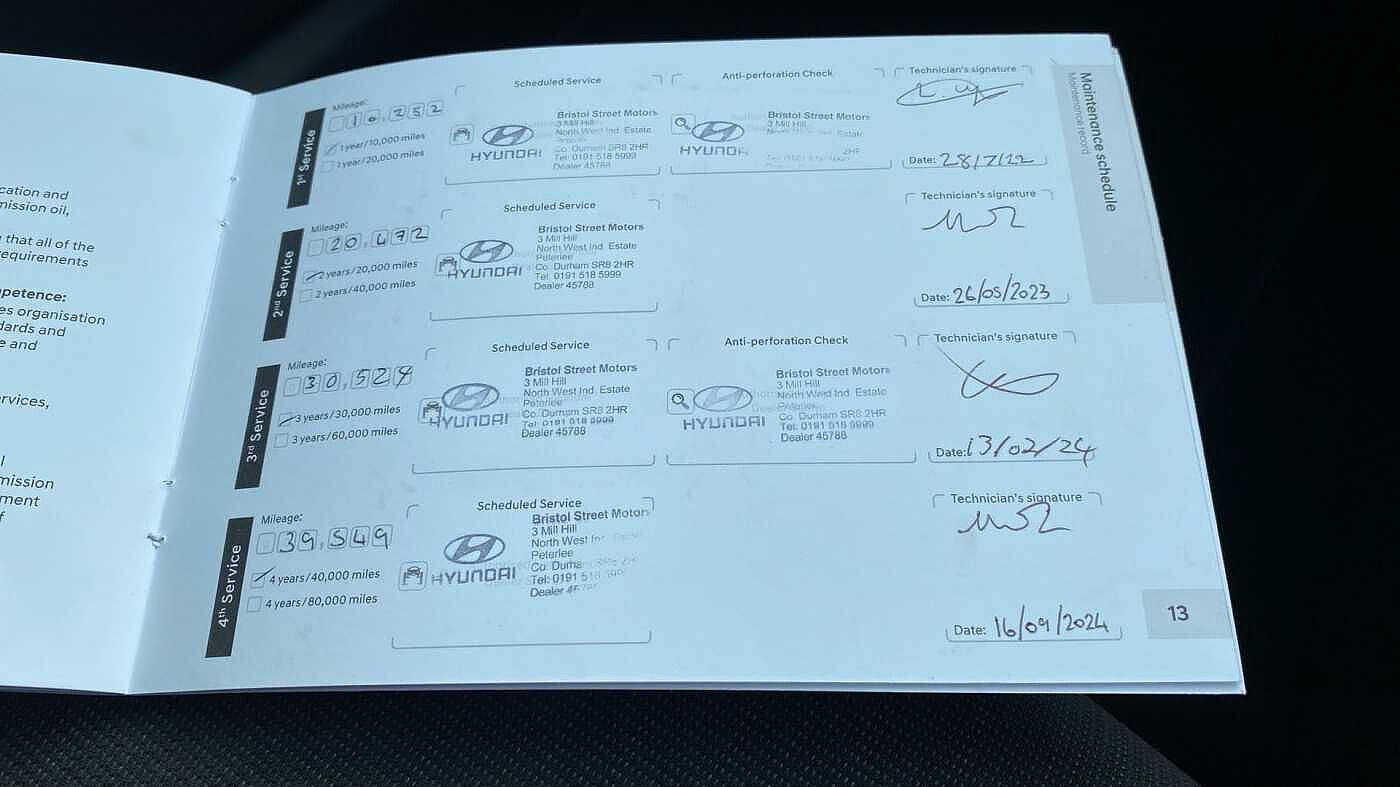 cation and
mission oil,
that all of the
requirements
petence:
es organisation
dards and
e and
rvices,
l
mission
ment
f
Maintenance schedule
Maintenance record
1st Service
Mileage:
10,252
1 year/10,000 miles
1 year/20,000 miles
Scheduled Service
HYUNDAI
Bristol Street Motors
3 Mill Hill
North West Ind. Estate
Co. Durham SR8 2HR
Tel: 0191 518 5999
Dealer 45788
Anti-perforation Check
HYUNDAI
Bristol Street Motors
3 Mill Hill
Estate
2HR
Technician's signature
Date: 28/7/22
2nd Service
Mileage:
20,472
2 years/20,000 miles
2 years/40,000 miles
Scheduled Service
HYUNDAI
Bristol Street Motors
3 Mill Hill
North West Ind. Estate
Peterlee
Co. Durham SR8 2HR
Tel: 0191 518 5999
Dealer 45788
Technician's signature
Date: 26/05/2023
3rd Service
Mileage:
30,524
3 years/30,000 miles
3 years/60,000 miles
Scheduled Service
HYUNDAI
Bristol Street Motors
3 Mill Hill
North West Ind. Estate
Peterlee
Co. Durham SR8 2HR
Tel: 0191 518 5999
Dealer 45788
Anti-perforation Check
HYUNDAI
Bristol Street Motors
3 Mill Hill
North West Ind. Estate
Peterlee
Co. Durham SR8 2HR
Tel: 0191 518 5999
Dealer 45788
Technician's signature
Date: 13/02/24
4th Service
Mileage:
39,549
4 years/40,000 miles
4 years/80,000 miles
Scheduled Service
HYUNDAI
Bristol Street Motors
3 Mill Hill
North West
Peterlee
Co. Durha
Tel: 0191 518
Dealer
Technician's signature
Date: 16/09/2024
13